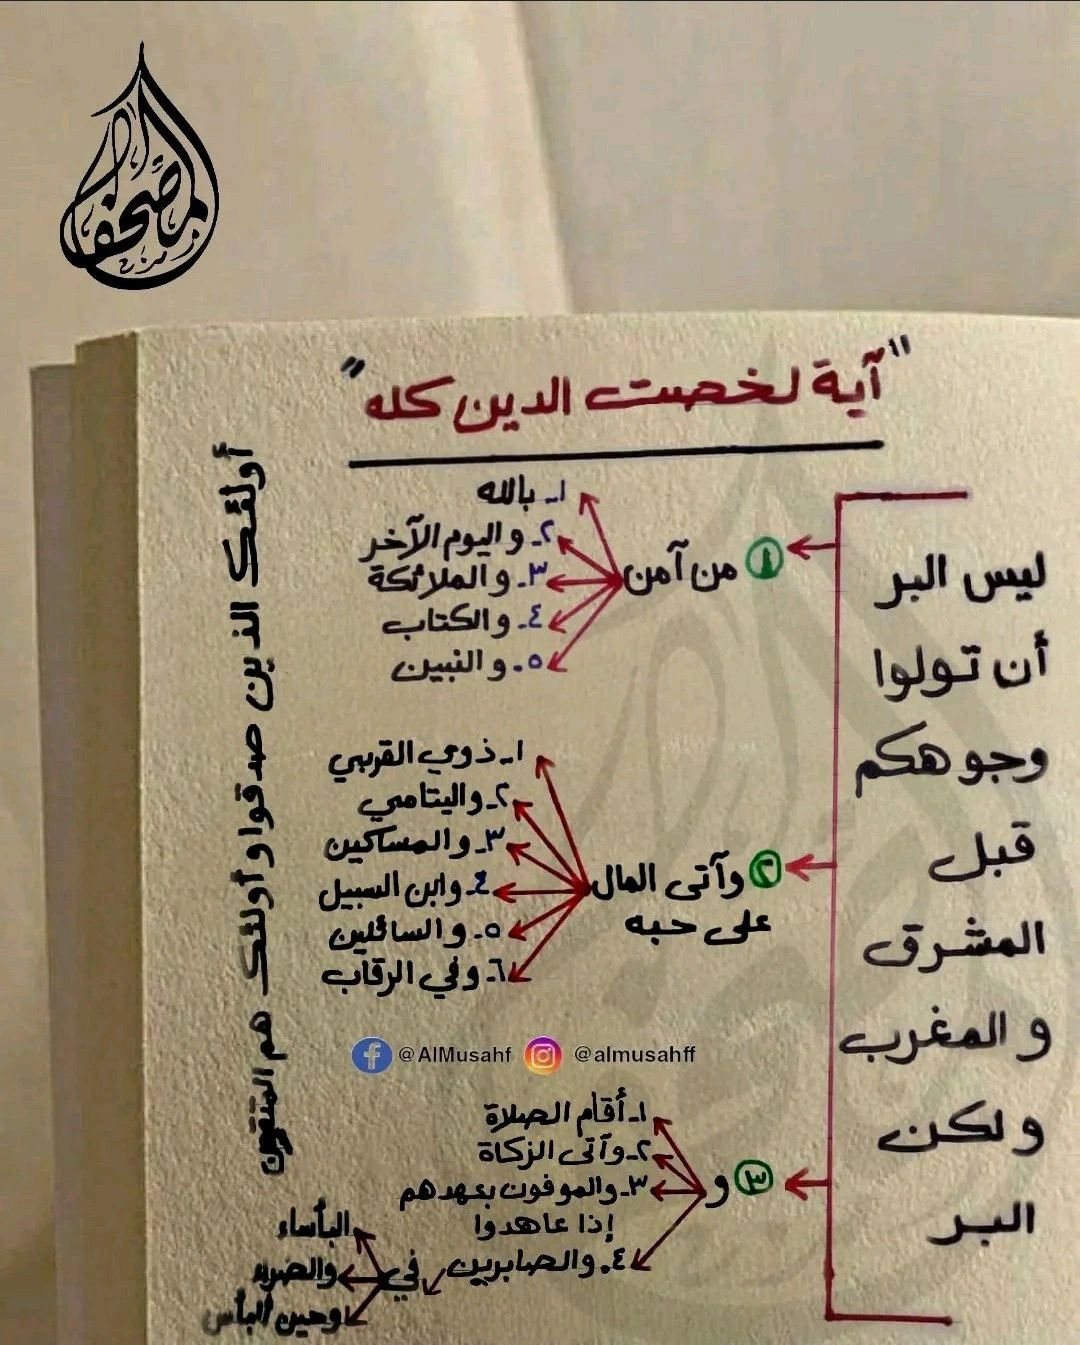 المصحف
"آية لخصت الدين كله"
ليس البر
أن تولوا
وجوهكم
قبل
المشرق
والمغرب
ولكن
البر
١ من آمن
١- بالله
٢- واليوم الآخر
٣- والملائكة
٤- والكتاب
٥- والنبين
٢ وآتى المال
على حبه
١- ذوي القربي
٢- واليتامي
٣- والمساكين
٤- وابن السبيل
٥- والسائلين
٦- وفي الرقاب
@AlMusahf @almusahff
٣ و
١- أقام الصلاة
٢- وآتى الزكاة
٣- والموفون بعهدهم
إذا عاهدوا
٤- والصابرين
في
البأساء
والضراء
وحين البأس
أولئك الذين صدقوا وأولئك هم المتقون